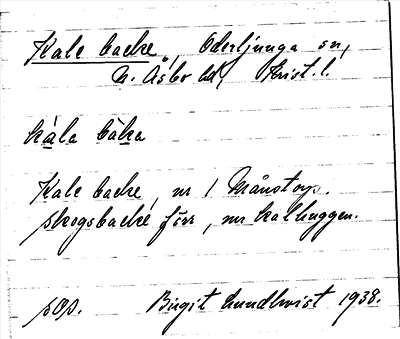 Kale backe, Oderljunga sn,
N. Åsbo hd, Krist. l.
kàla bàka
Kale backe, nr 1 Månstorp.
skogsbacke förr, nu kalhuggen.
sep. Birgit Lundkvist 1938.